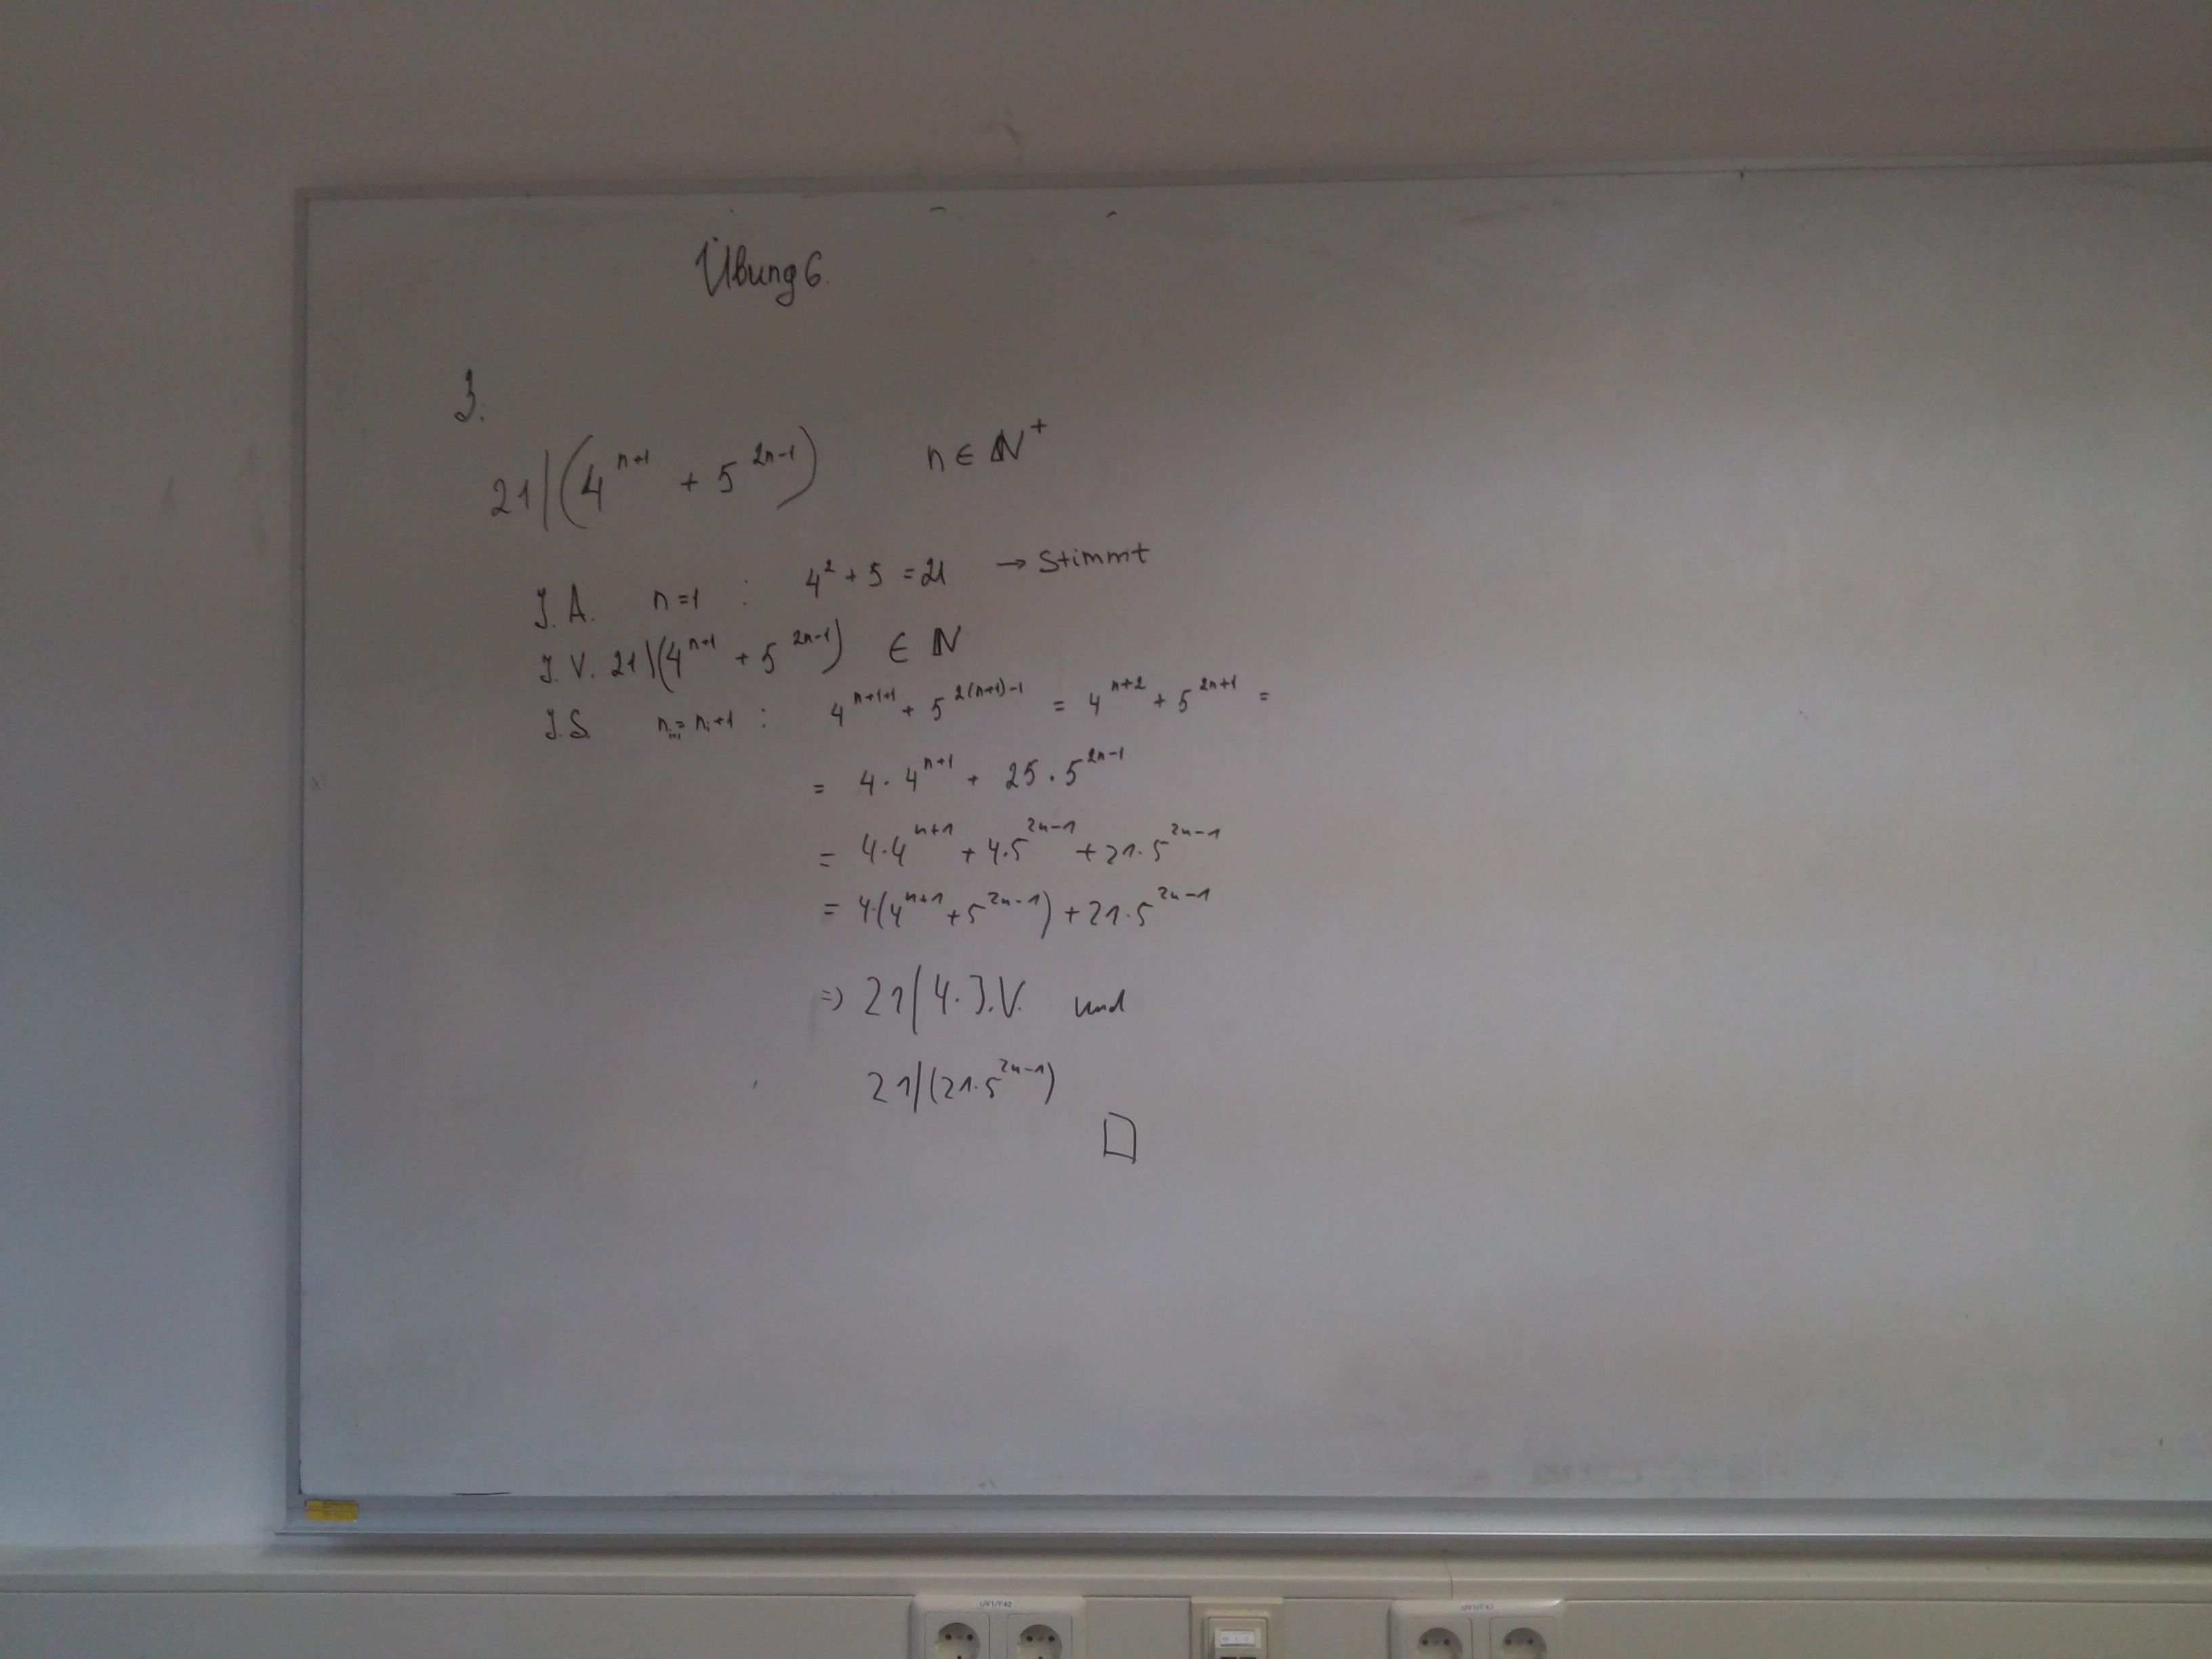 Übung 6.
3.
21 | (4^{n+1} + 5^{2n-1}) n ∈ ℕ^+
I. A. n = 1 : 4^2 + 5 = 21 → Stimmt
I. V. 21 | (4^{n+1} + 5^{2n-1}) ∈ ℕ
I. S. n_{i+1} = n_i + 1 : 4^{n+1+1} + 5^{2(n+1)-1} = 4^{n+2} + 5^{2n+1} =
= 4 · 4^{n+1} + 25 · 5^{2n-1}
= 4 · 4^{n+1} + 4 · 5^{2n-1} + 21 · 5^{2n-1}
= 4 · (4^{n+1} + 5^{2n-1}) + 21 · 5^{2n-1}
⇒ 21 | 4 · I.V. und
21 | (21 · 5^{2n-1})
□
UV1/F42
UV1/F43